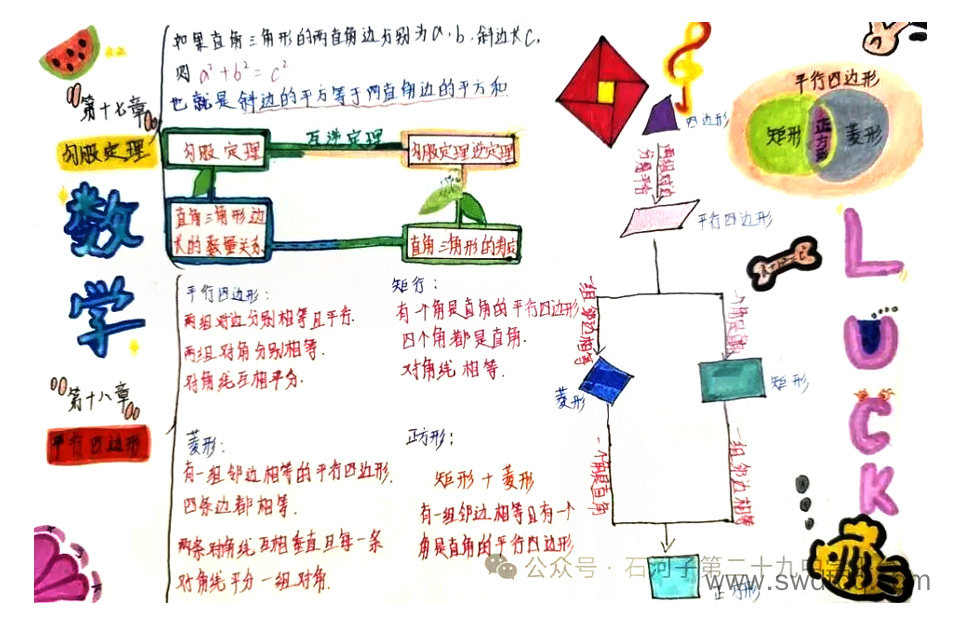 如果直角三角形的两直角边分别为a,b,斜边长c,
则 a²+b²=c²
也就是斜边的平方等于两直角边的平方和
第十七章
勾股定理
数学
第十八章
平行四边形
勾股定理
互逆定理
勾股定理逆定理
直角三角形边
长的数量关系
直角三角形的判定
平行四边形:
两组对边分别相等且平行.
两组对角分别相等.
对角线互相平分.
矩行:
有一个角是直角的平行四边形
四个角都是直角.
对角线相等.
菱形:
有一组邻边相等的平行四边形.
四条边都相等.
两条对角线互相垂直且每一条
对角线平分一组对角.
正方形:
矩形+菱形
有一组邻边相等且有一个
角是直角的平行四边形
四边形
两组对边
分别平行
平行四边形
一组邻边相等
菱形
一个角是直角
矩形
一个角是直角
一组邻边相等
正方形
平行四边形
矩形
正方形
菱形
LUCK
公众号·石河子第二十九中学